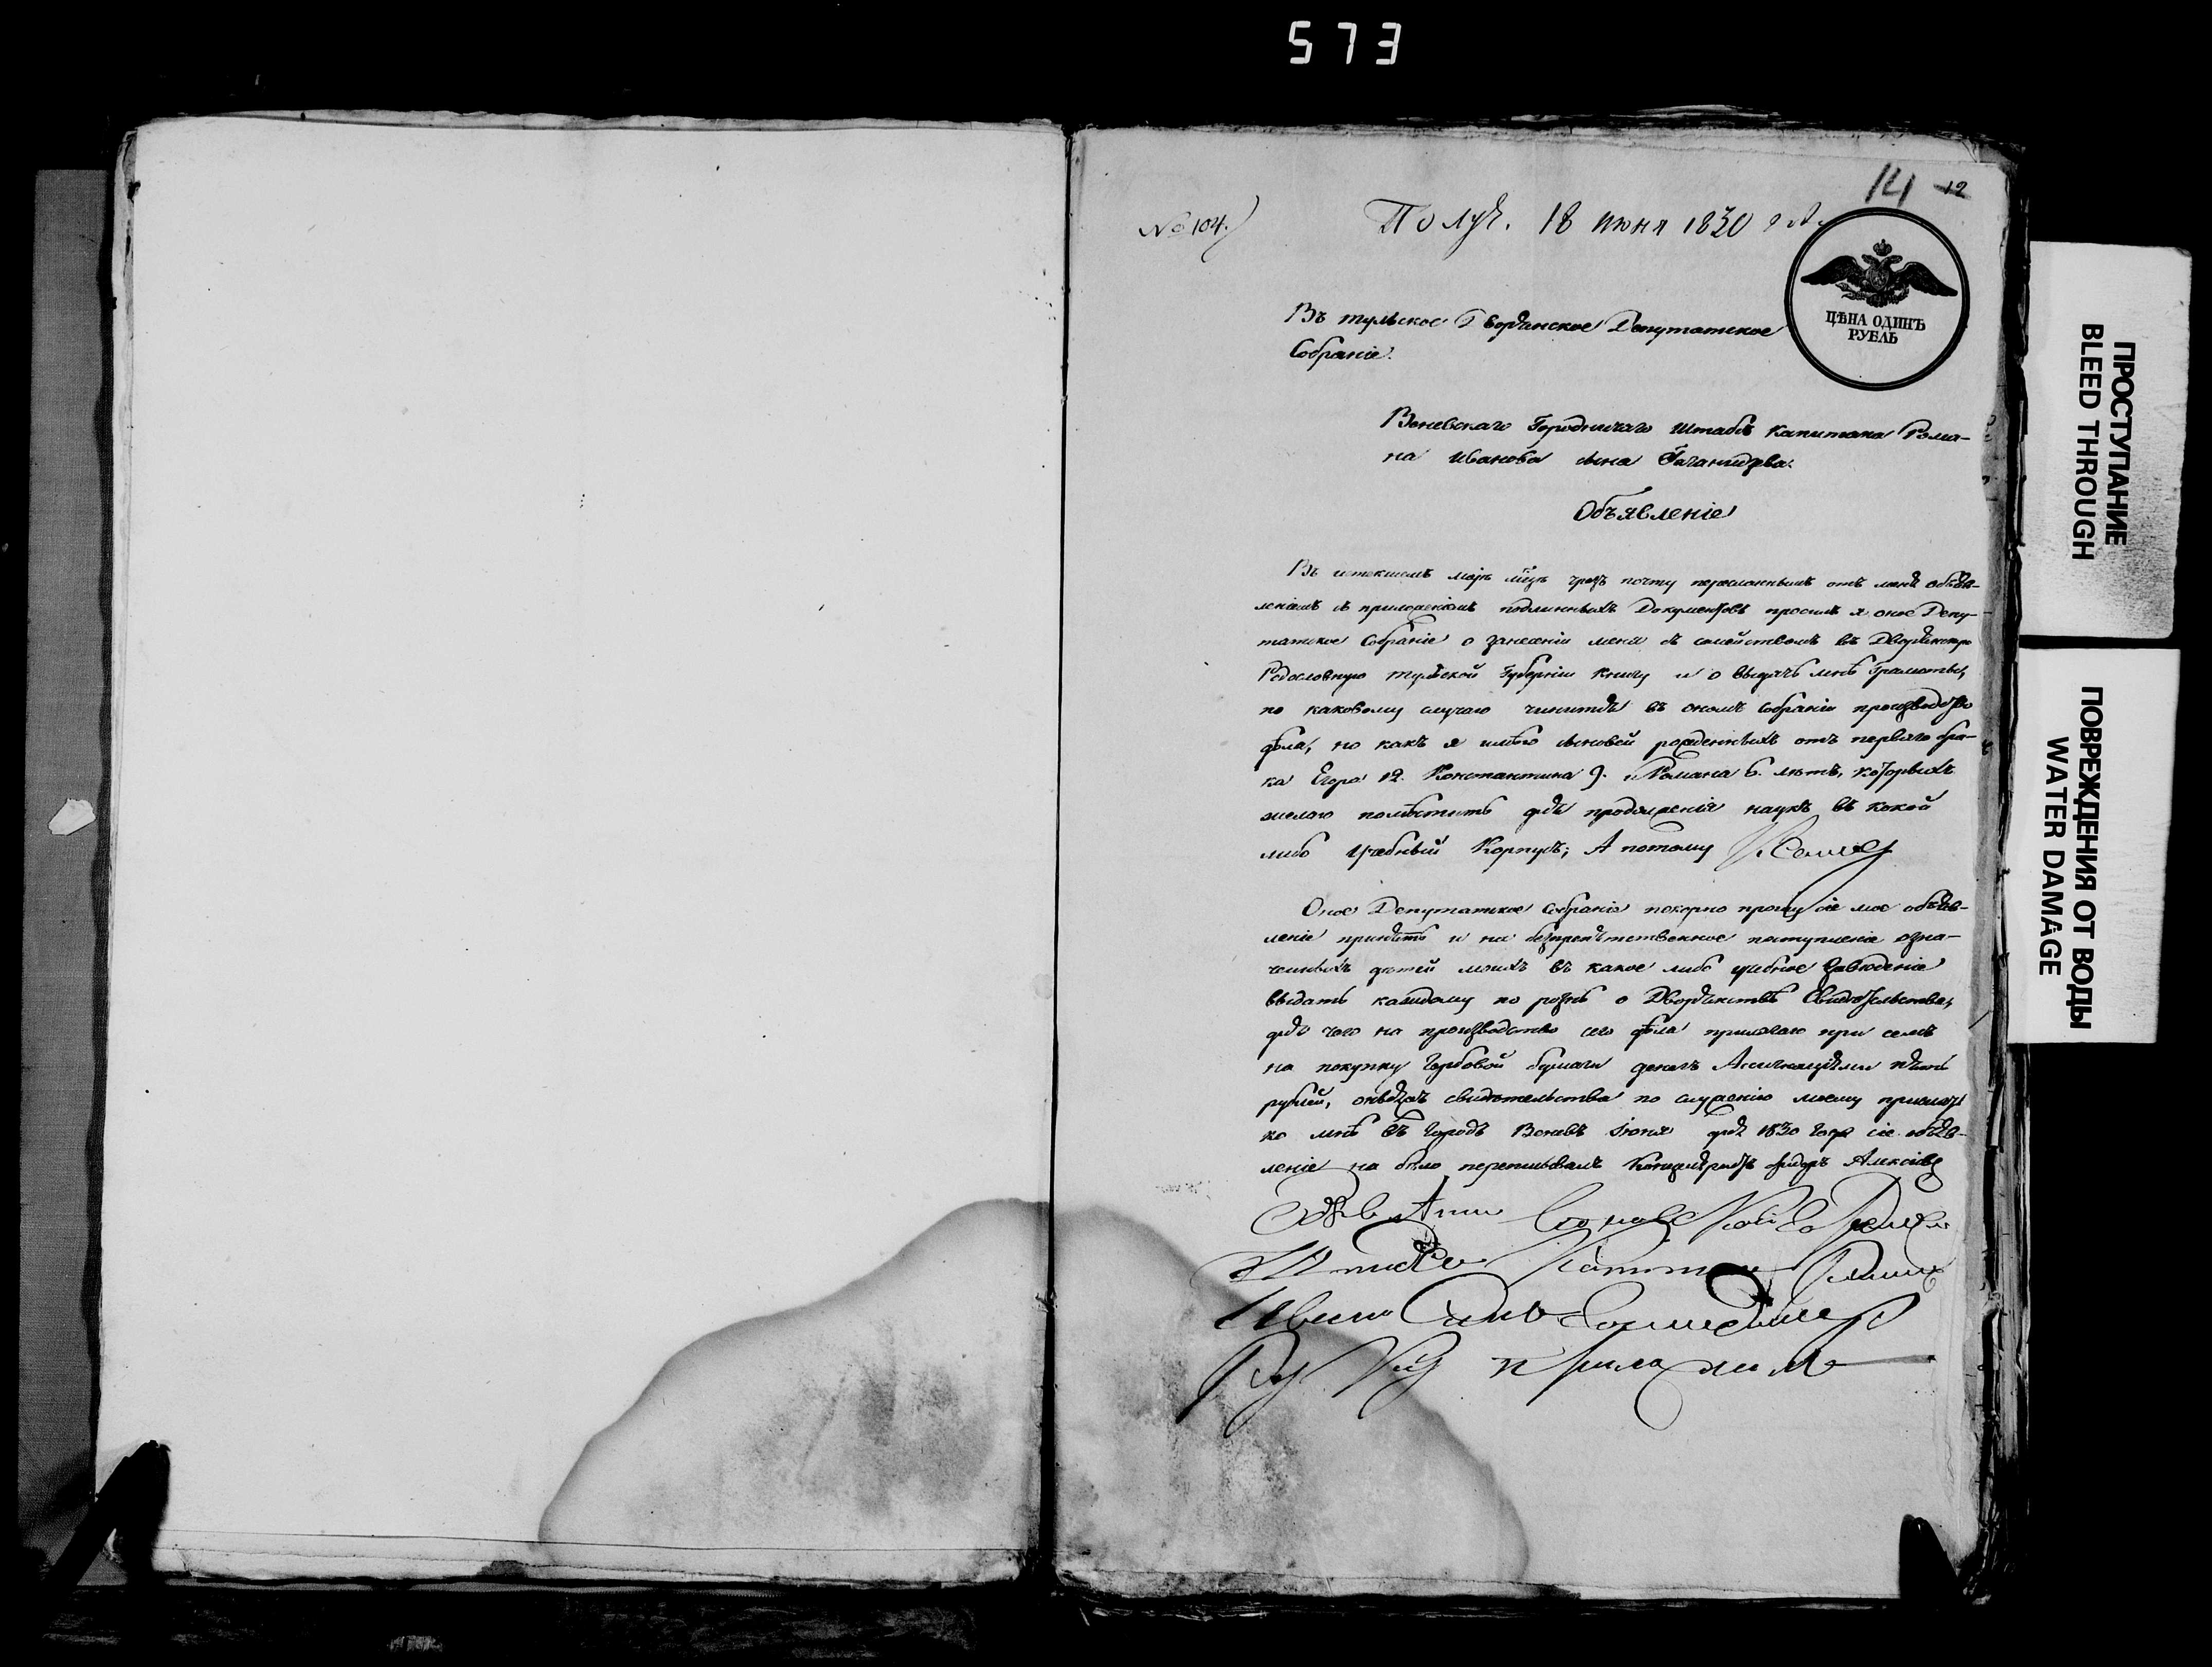 573
14 12
№ 104.
Получ. 18 июня 1830 года
ЦѢНА ОДИНЪ
РУБЛЬ
Въ тульское Дворянское Депутатское
Собраніе.
Веневскаго Городничаго Штабсъ капитана Рома-
на Иванова сына
Объявленіе
Въ истекшемъ маѣ мцѣ чрезъ почту пересланнымъ отъ меня объяв-
леніемъ съ приложеніемъ подлинныхъ Документовъ просилъ я оное Депу-
татское Собраніе о занесеніи меня съ семействомъ въ Дворянскую
Родословную тульской Губерніи книгу и о выдачѣ мнѣ Грамоты,
по каковому случаю чинится въ ономъ собраніи производство
дѣла, но какъ я имѣю сыновей рожденныхъ отъ перваго бра-
ка Егора 12. Константина 9. и Романа 6. лѣтъ, которыхъ
желаю помѣстить для продолженія наукъ въ какой
либо Учебный Корпусъ; А потому
Оное Депутатское собраніе покорно прошу сіе мое объяв-
леніе принять и на безпрепятственное поступленіе озна-
ченныхъ дѣтей моихъ въ какое либо учебное заведеніе
выдать каждому по рознь о Дворянствѣ Свидѣтельства,
для чего на производство сего дѣла прилагаю при семъ
на покупку Гербовой бумаги денегъ Ассигнаціями пять
рублей, свидѣтельства по служенію моему прислать
ко мнѣ въ Городъ Веневъ Іюня дня 1830 года сіе объяв-
леніе на бѣло переписывалъ Канцеляристъ Алексѣевъ
Штабсъ Капитанъ Романъ
Ивановъ Сынъ
Руку приложилъ
ПРОСТУПАНИЕ
BLEED THROUGH
ПОВРЕЖДЕНИЯ ОТ ВОДЫ
WATER DAMAGE